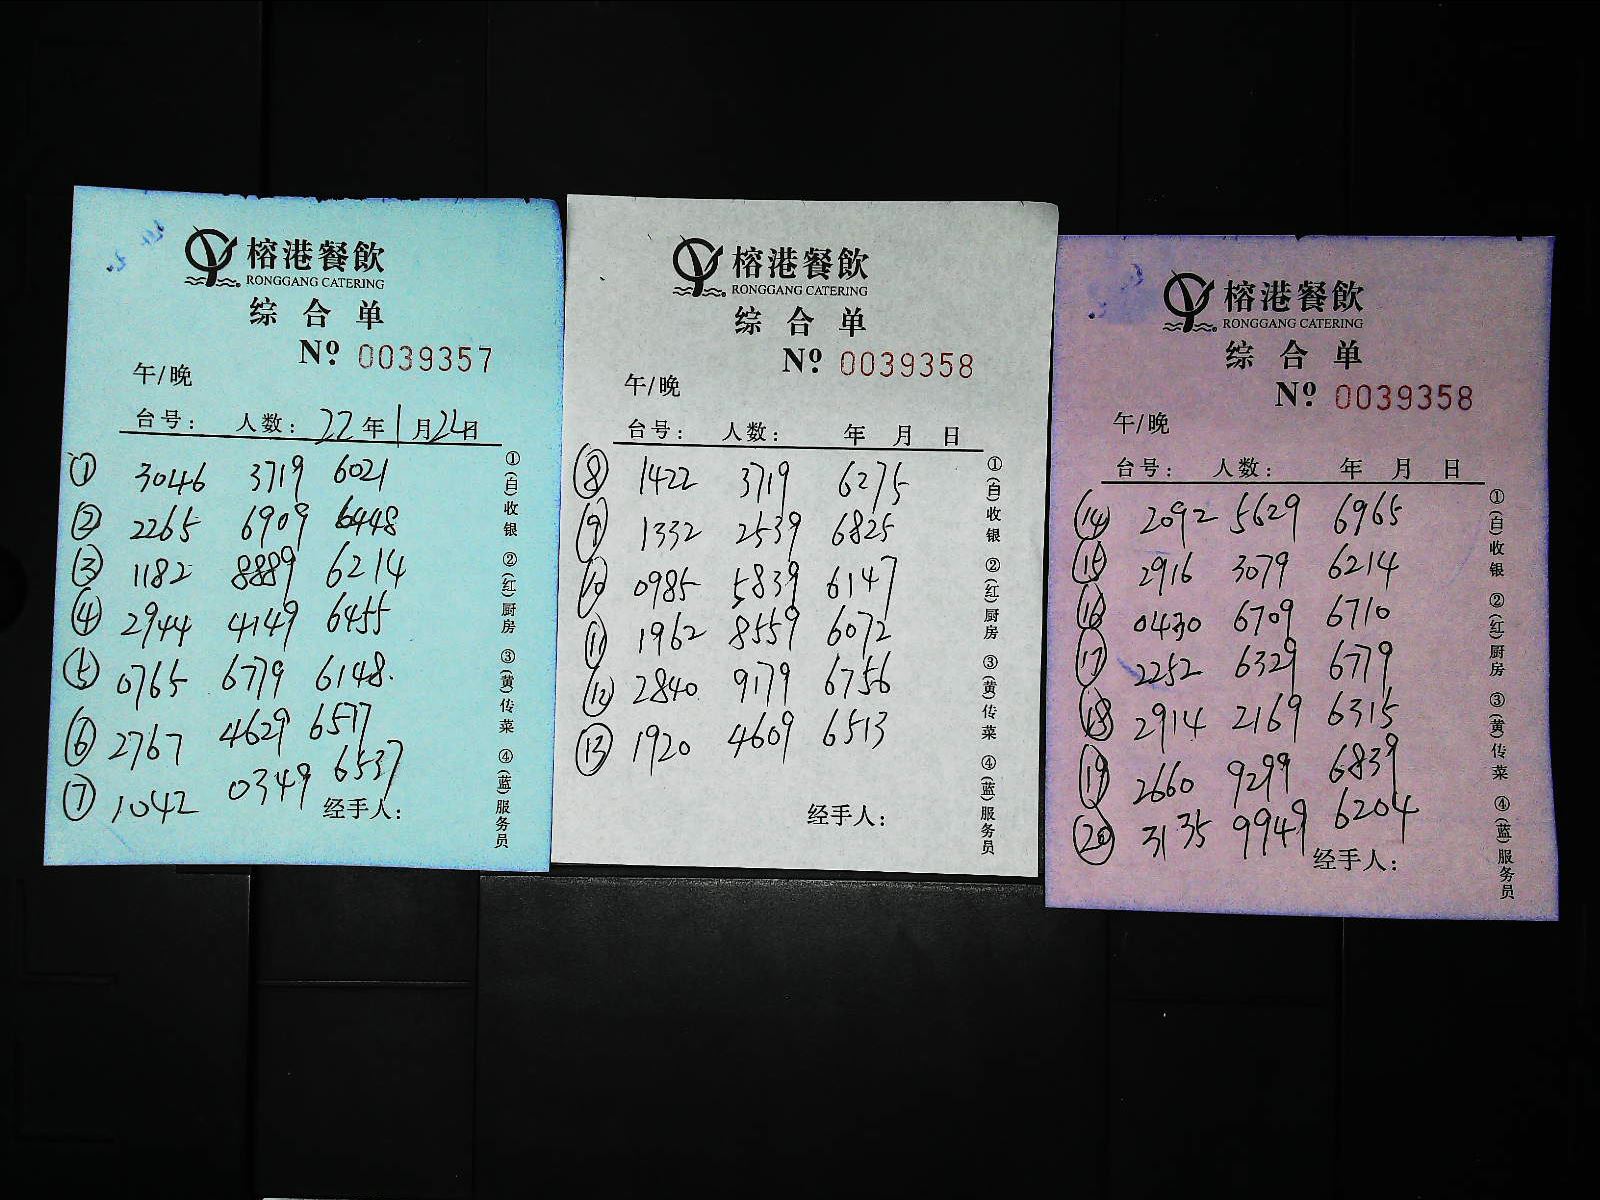 榕港餐飲
RONGGANG CATERING
综合单
№ 0039357
午/晚
台号： 人数： 22年1月24日
① 3046 3719 6021
② 2265 6909 6448
③ 1182 8889 6214
④ 2944 4149 6455
⑤ 0765 6779 6148.
⑥ 2767 4629 6577
⑦ 1042 0349 6537
经手人：
①(白)收银 ②(红)厨房 ③(黄)传菜 ④(蓝)服务员
榕港餐飲
RONGGANG CATERING
综合单
№ 0039358
午/晚
台号： 人数： 年 月 日
⑧ 1422 3719 6275
⑨ 1332 2539 6825
⑩ 0985 5839 6147
⑪ 1962 8559 6072
⑫ 2840 9179 6756
⑬ 1920 4609 6513
经手人：
①(白)收银 ②(红)厨房 ③(黄)传菜 ④(蓝)服务员
榕港餐飲
RONGGANG CATERING
综合单
№ 0039358
午/晚
台号： 人数： 年 月 日
⑭ 2092 5629 6965
⑮ 2916 3079 6214
⑯ 0430 6709 6710
⑰ 2252 6329 6779
⑱ 2914 2169 6315
⑲ 2660 9299 6839
⑳ 3135 9949 6204
经手人：
①(白)收银 ②(红)厨房 ③(黄)传菜 ④(蓝)服务员